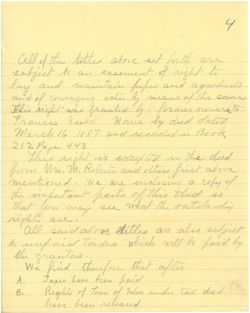 4
All of the titles above set forth are
subject to an easement of right to
lay and maintain pipes and aqueducts
and of conveying water by means of the same
This right was granted by former owners to
Francis Morris by deed dated
March 16, 1867 and recorded in Book
212 Page 443
This right is excepted in the deed
from Wm. M. Roberts and others first above
mentioned. We are enclosing a copy of
the important parts of this deed so
that you may see what the outstanding
rights are.
All said above titles are also subject
to unpaid taxes which will be paid by
the grantors.
We find therefore that after
A. Taxes have been paid
B. Rights of Town of under tax deed
have been released